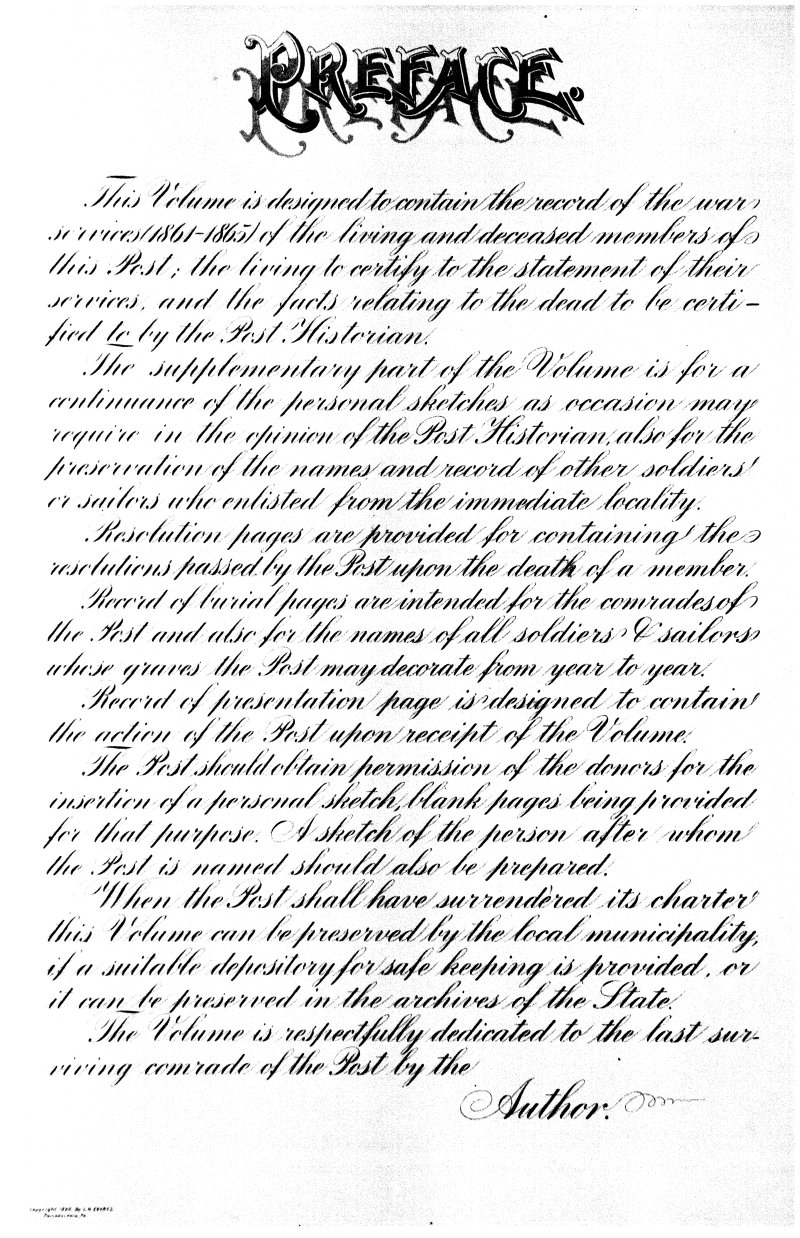 PREFACE.
This Volume is designed to contain the record of the war
services (1861-1865) of the living and deceased members of
this Post; the living to certify to the statement of their
services, and the facts relating to the dead to be certi-
fied to by the Post Historian.
The supplementary part of the Volume is for a
continuance of the personal sketches as occasion may
require in the opinion of the Post Historian, also for the
preservation of the names and record of other soldiers
or sailors who enlisted from the immediate locality.
Resolution pages are provided for containing the
resolutions passed by the Post upon the death of a member.
Record of burial pages are intended for the comrades of
the Post and also for the names of all soldiers & sailors
whose graves the Post may decorate from year to year.
Record of presentation page is designed to contain
the action of the Post upon receipt of the Volume.
The Post should obtain permission of the donors for the
insertion of a personal sketch, blank pages being provided
for that purpose. A sketch of the person after whom
the Post is named should also be prepared.
When the Post shall have surrendered its charter
this Volume can be preserved by the local municipality,
if a suitable depository for safe keeping is provided, or
it can be preserved in the archives of the State.
The Volume is respectfully dedicated to the last sur-
viving comrade of the Post by the
Author.
Copyright By L.H. EVERTS
Philadelphia, Pa.